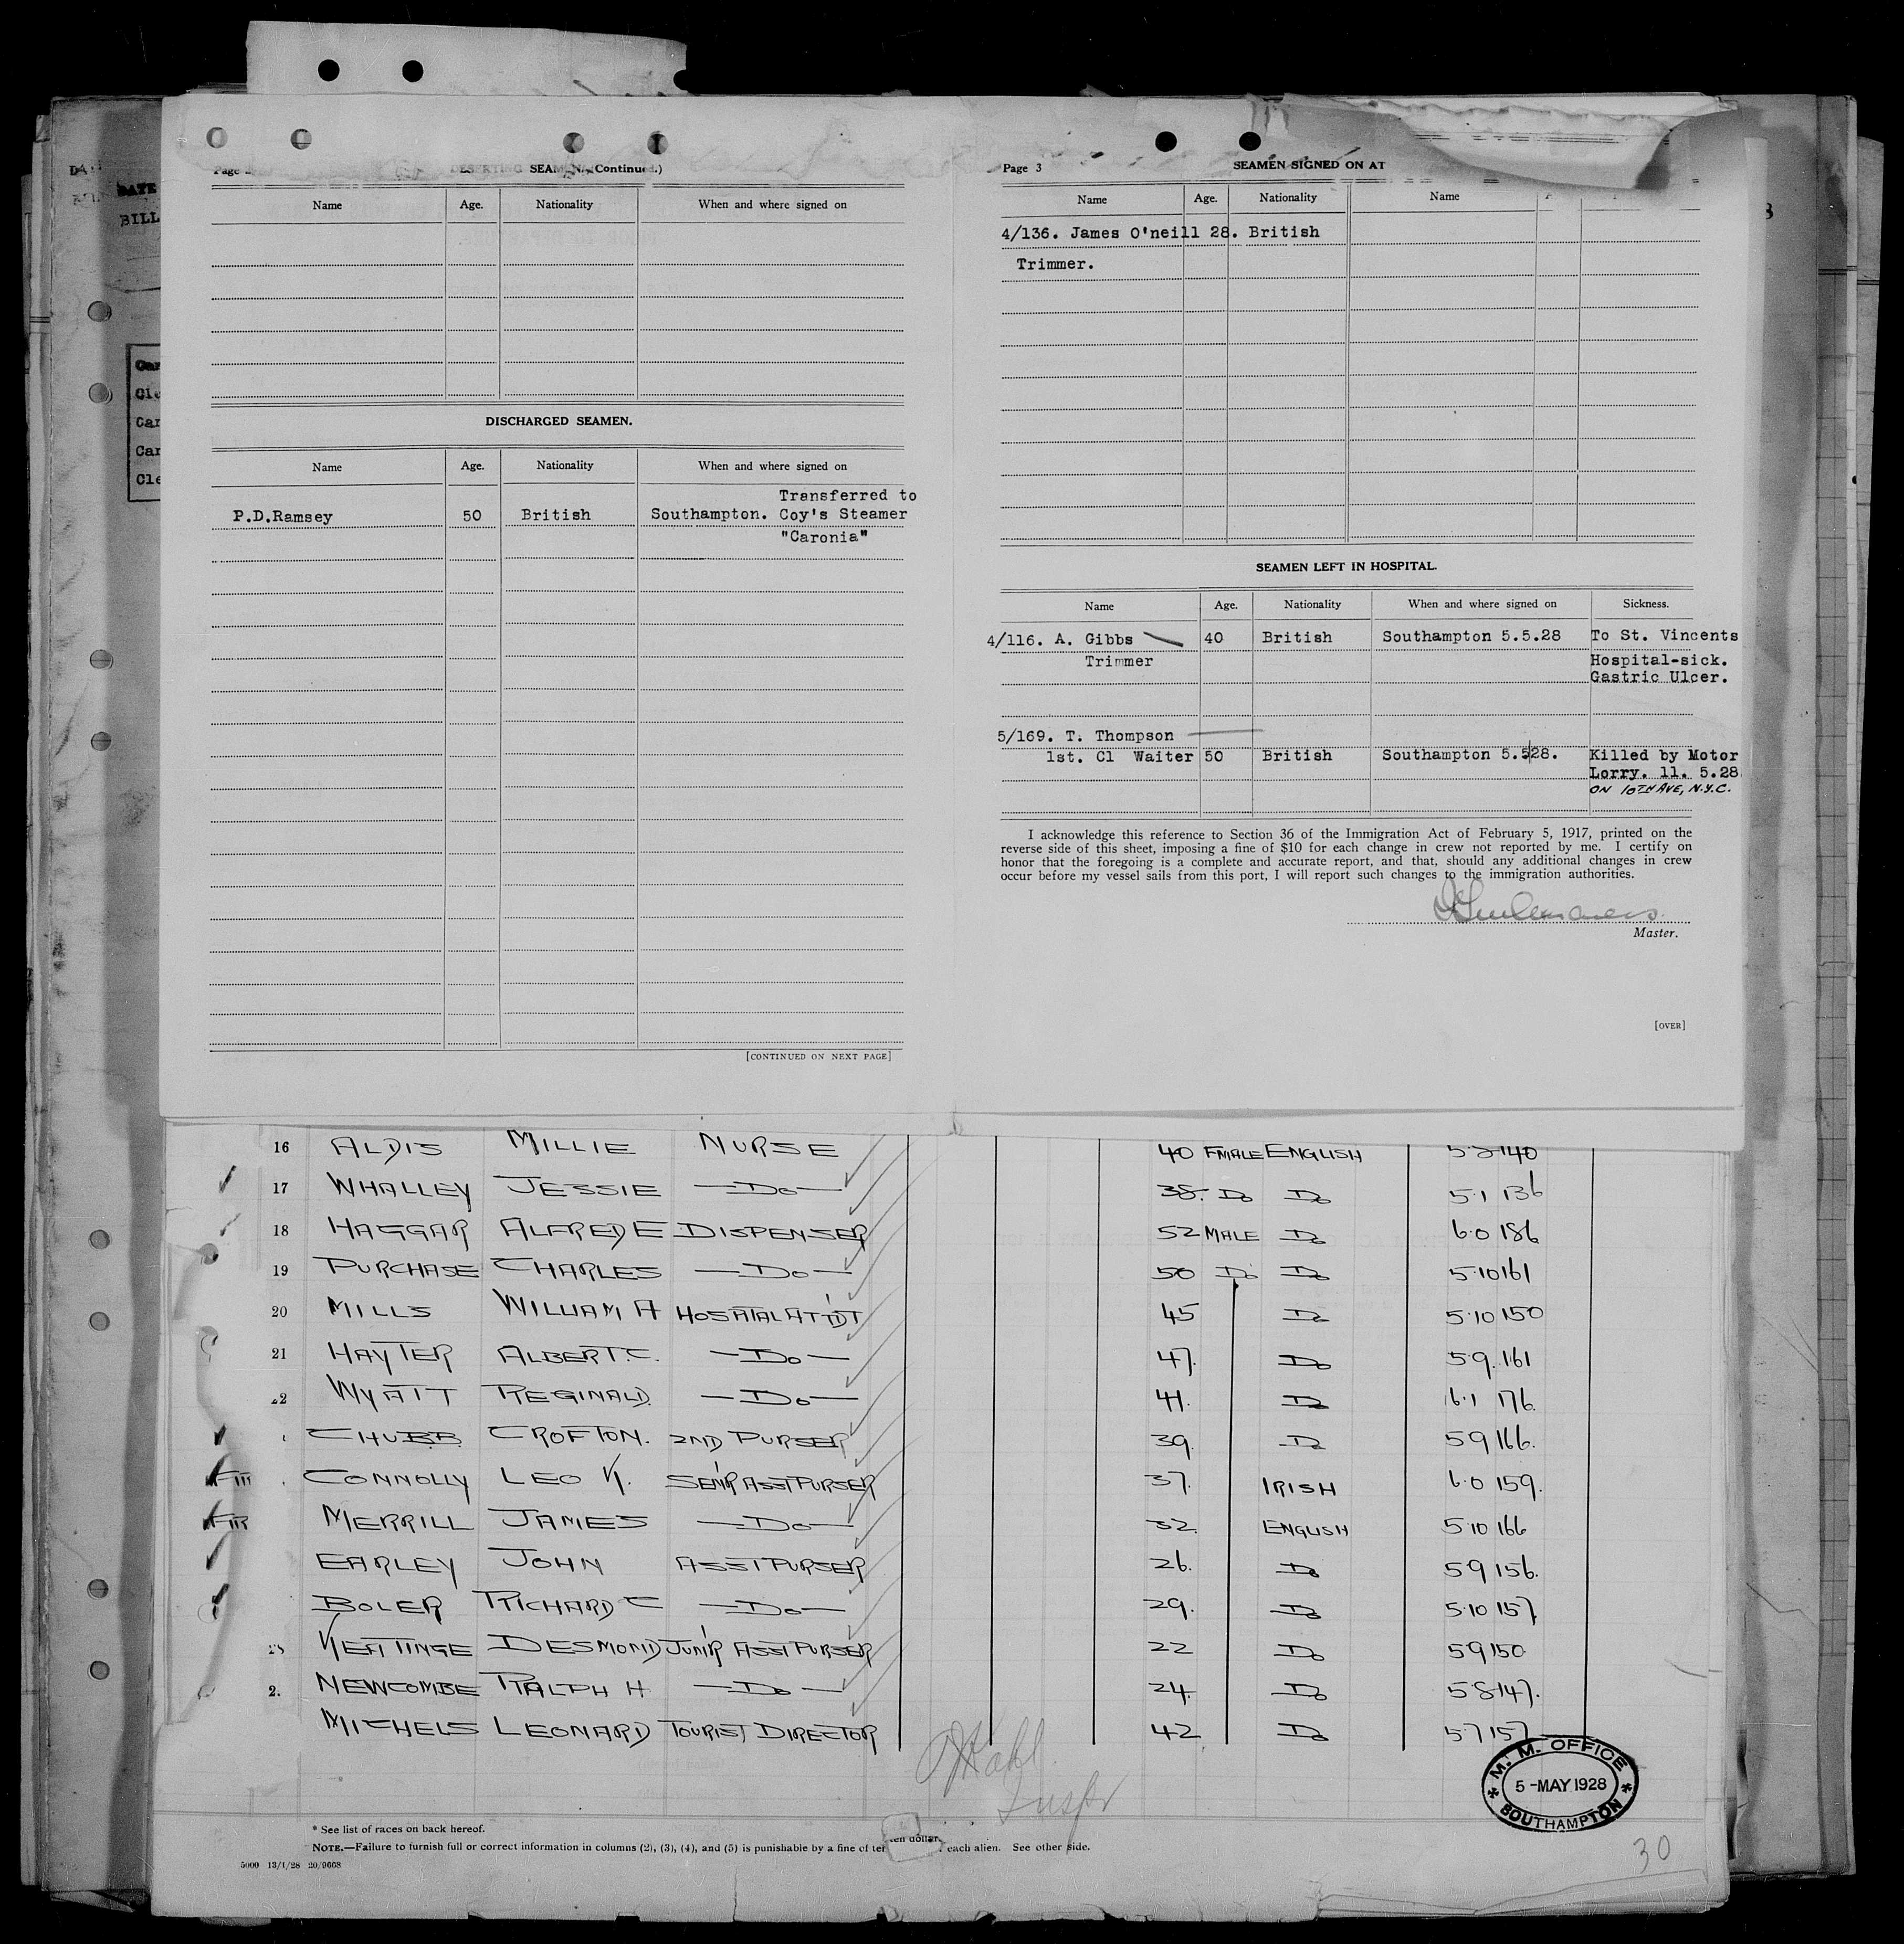 DATE
BILL
Page
DESERTING SEAMEN. (Continued.)
Name Age. Nationality When and where signed on
DISCHARGED SEAMEN.
Name Age. Nationality When and where signed on
Transferred to
P.D.Ramsey 50 British Southampton. Coy's Steamer
"Caronia"
[CONTINUED ON NEXT PAGE]
Page 3 SEAMEN SIGNED ON AT
Name Age. Nationality Name
4/136. James O'neill 28. British
Trimmer.
SEAMEN LEFT IN HOSPITAL.
Name Age. Nationality When and where signed on Sickness.
4/116. A. Gibbs 40 British Southampton 5.5.28 To St. Vincents
Trimmer Hospital-sick.
Gastric Ulcer.
5/169. T. Thompson
1st. Cl Waiter 50 British Southampton 5.528. Killed by Motor
Lorry. 11. 5.28
ON 10TH AVE, N.Y.C.
I acknowledge this reference to Section 36 of the Immigration Act of February 5, 1917, printed on the
reverse side of this sheet, imposing a fine of $10 for each change in crew not reported by me. I certify on
honor that the foregoing is a complete and accurate report, and that, should any additional changes in crew
occur before my vessel sails from this port, I will report such changes to the immigration authorities.
Master.
[OVER]
16 ALDIS MILLIE NURSE 40 FMALE ENGLISH 5·8 140
17 WHALLEY JESSIE —Do— 38. Do Do 5·1 136
18 HAGGAR ALFRED E DISPENSER 52 MALE Do 6·0 186
19 PURCHASE CHARLES —Do— 50 Do Do 5·10 161
20 MILLS WILLIAM A HOSPITAL ATT'DT 45 Do 5·10 150
21 HAYTER ALBERT.C. —Do— 47. Do 5·9. 161
22 WYATT REGINALD. —Do— 41. Do 6·1 176.
CHUBB CROFTON. 2ND PURSER 39. Do 5 9 166.
CONNOLLY LEO K. SEN'R ASST PURSER 37. IRISH 6·0 159.
MERRILL JAMES —Do— 32. ENGLISH 5·10 166
EARLEY JOHN ASST PURSER 26. Do 5 9 156.
BOLER RICHARD C —Do— 29. Do 5·10 157.
KEATINGE DESMOND JUN'R ASST PURSER 22 Do 5 9 150
2. NEWCOMBE RALPH H —Do— 24. Do 5·8 147.
MICHELS LEONARD TOURIST DIRECTOR 42 Do 5·7 157
Inspr
M. M. OFFICE
5 -MAY 1928
SOUTHAMPTON
30
* See list of races on back hereof.
NOTE.—Failure to furnish full or correct information in columns (2), (3), (4), and (5) is punishable by a fine of ten dollar each alien. See other side.
5000 13/1/28 20/9668